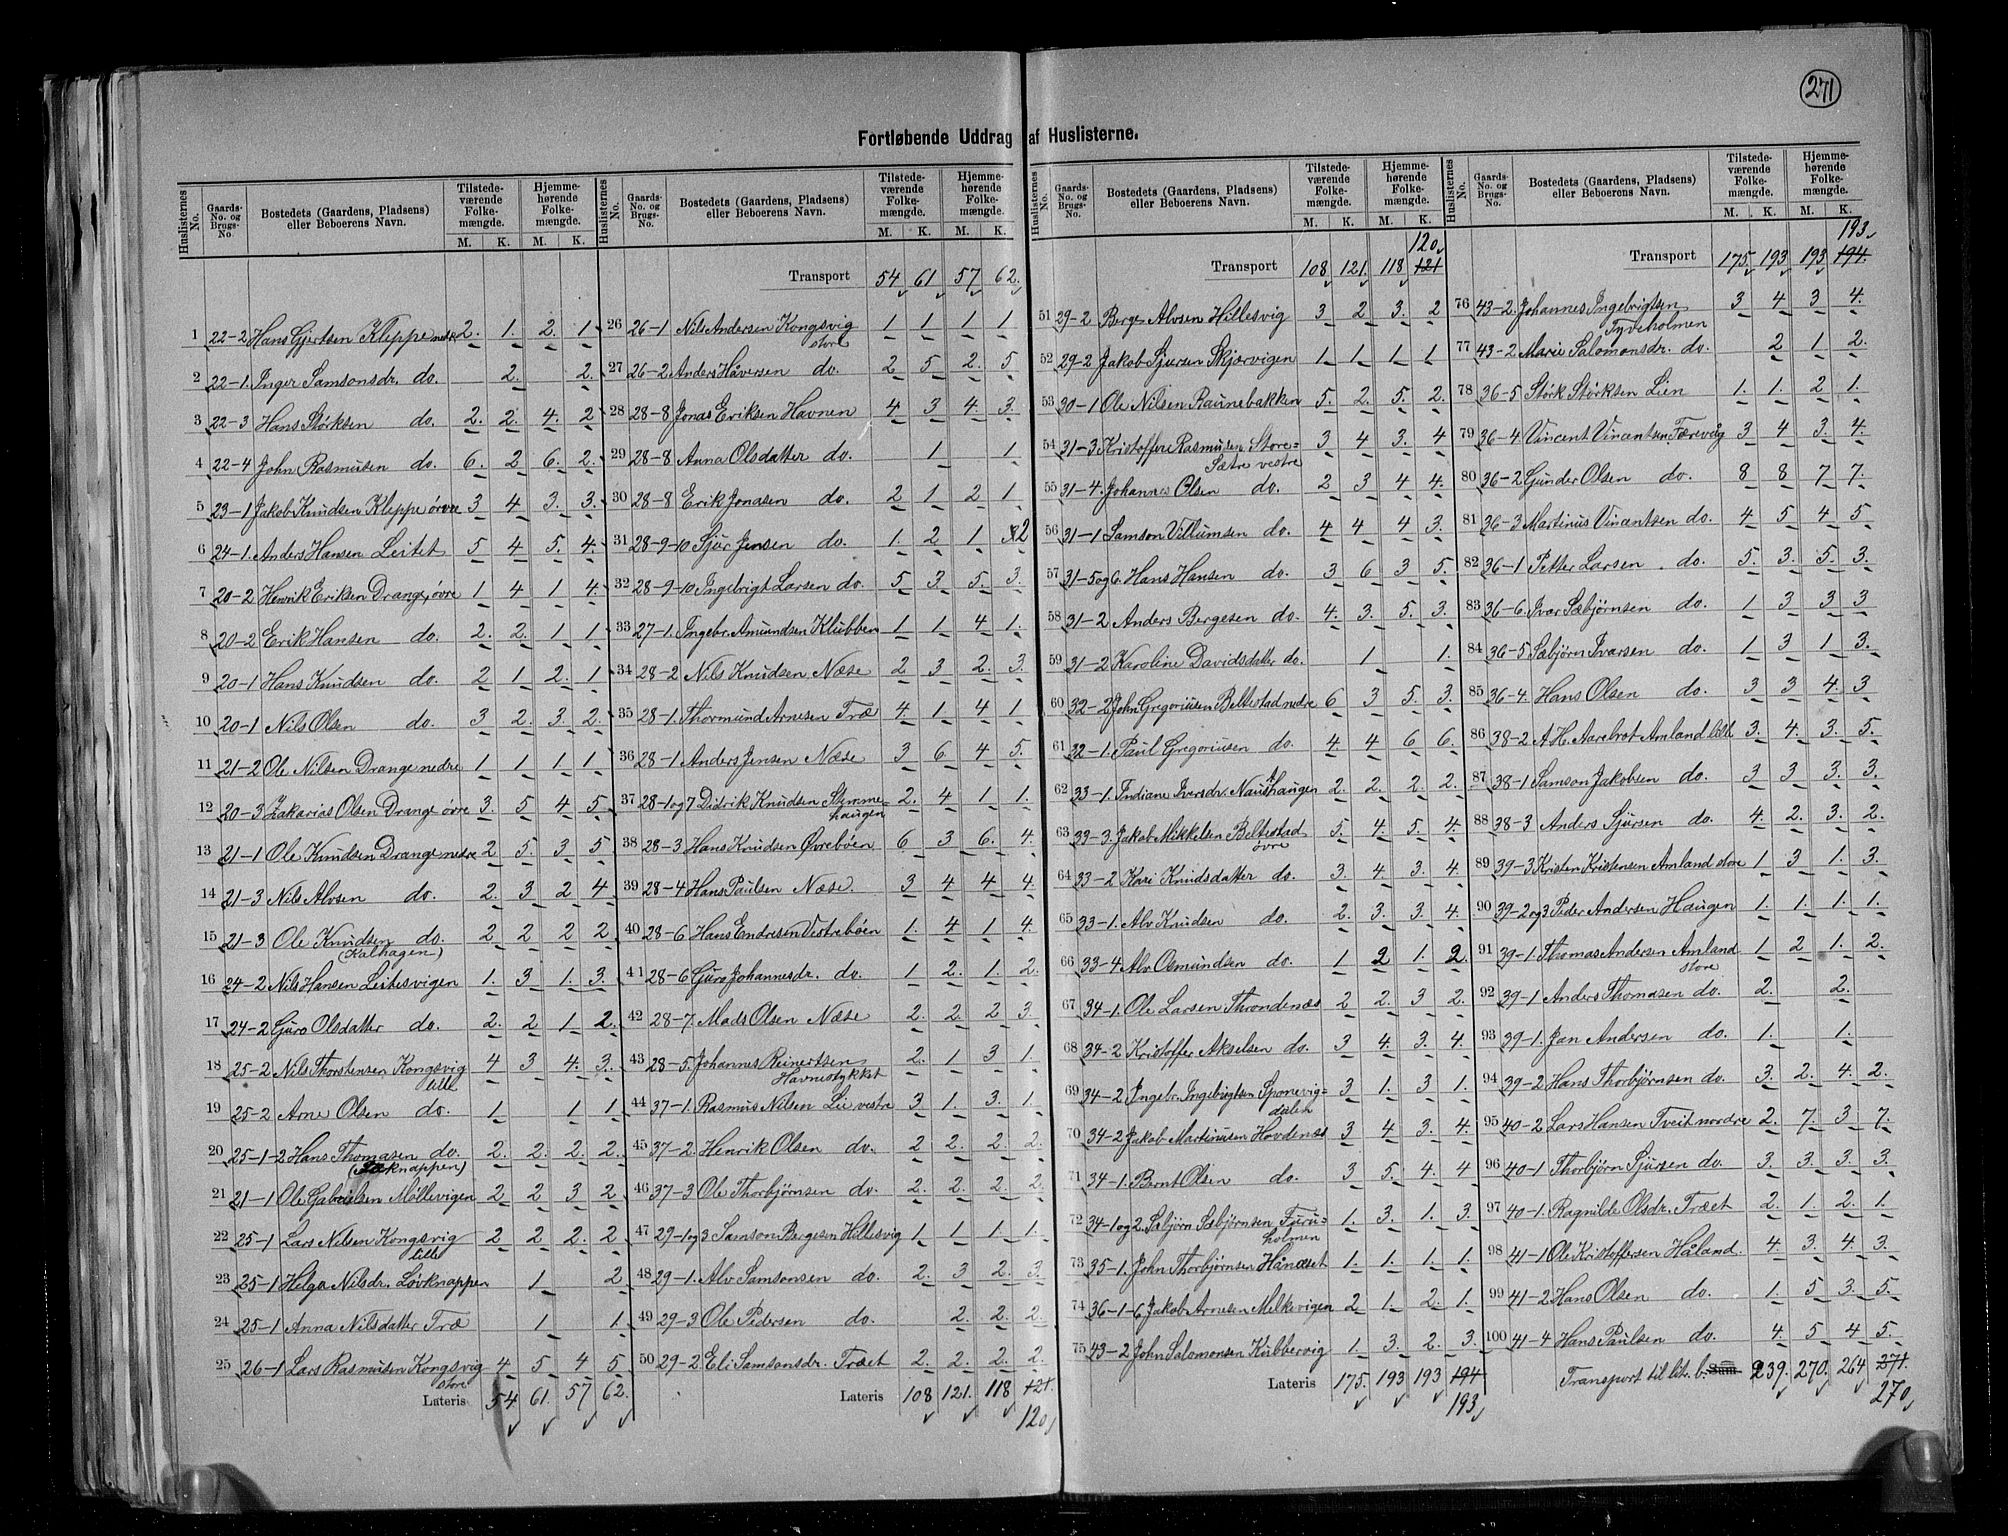 271
Fortløbende Uddrag af Huslisterne.
Huslisternes No. Gaards-No. og Brugs-No. Bostedets (Gaardens, Pladsens) eller Beboerens Navn. Tilstede-værende Folke-mængde. M. K. Hjemme-hørende Folke-mængde. M. K.
1 22-2 Hans Gjertsen Kleppe nedre 2. 1. 2. 1
2 22-1. Inger Samsonsdr. do. 2. 2.
3 22-3 Hans Størksen do. 2. 2. 4. 2
4 22-4 John Rasmusen do. 6. 2 6. 2.
5 23-1 Jakob Knudsen Kleppe øvre 3 4 3. 3.
6 24-1. Anders Hansen Leitet 5 4 5. 4.
7 20-2 Henrik Eriksen Drange, øvre 1 4 1 4.
8 20-2 Erik Hansen do. 2. 2. 1 1
9 20-1 Hans Knudsen do. 2 1 2. 1
10 20-1 Nils Olsen do. 3 2. 3. 2.
11 21-2 Ole Nilsen Drange nedre 1 1 1 1
12 20-3 Zakarias Olsen Drange øvre 3. 5 4 5
13 21-1 Ole Knudsen Drange nedre 2 5 3 5
14 21-3 Nils Alvsen do. 2. 3 2 4
15 21-3 Ole Knudsen do. 2. 2 2 2
(Kalhagen)
16 24-2 Nils Hansen Leitesvigen 1. 3 1. 3.
17 24-2 Guro Olsdatter do. 2. 2 1 2.
18 25-2 Nils Thorstensen Kongsvig 4 3 4. 3.
lille
19 25-2 Arne Olsen do. 1 1 1
20 25-1-2 Hans Thomasen do. 2. 2. 2. 2.
21 21-1 Ole Gabrielsen Møllevigen 2 2 3 2
22 25-1 Lars Nilsen Kongsvig 2 2. 2. 2
lille
23 25-1 Helga Nilsdr. Løvknappen 1 2
24 25-1 Anna Nilsdatter Træ 1 1.
25 26-1 Lars Rasmusen Kongsvig 4 5 4 5
store
Lateris 54 61. 57 62.
Transport 54 61 57 62.
26 26-1 Nils Andersen Kongsvig 1 1 1 1
store
27 26-2 Anders Håversen do. 2 5 2. 5
28 28-8 Jonas Eriksen Havnen 4 3 4 3.
29 28-8 Anna Olsdatter do. 1 1
30 28-8 Erik Jonasen do. 2 1 2 1
31 28-9-10 Sjur Jensen do. 1. 2 1 2
32 28-9-10 Ingebrigt Larsen do. 5 3 5. 3.
33 27-1. Ingebr. Amundsen Klubben 1 1 4 1.
34 28-2 Nils Knudsen Næse 2 3 2. 3.
35 28-1. Thormund Arnesen Træ 4. 1 4 1
36 28-1 Anders Jensen Næse 3 6 4 5.
37 28-1og7 Didrik Knudsen Stemme= 2. 4 1 1.
haugen
38 28-3 Hans Knudsen Øvrebøen 6 3 6. 4.
39 28-4 Hans Paulsen Næse. 3 4 4 4.
40 28-6 Hans Endresen Vestrebøen 1. 4 1 4.
41 28-6 Guro Johannesdr. do. 1 2. 1. 2.
42 28-7 Mads Olsen Næse 2. 2 2 3
43 28-5. Johannes Reinertsen 2. 1 3 1.
Havnestykket
44 37-1. Rasmus Nilsen Lie vestre 3 1. 3. 1.
45 37-2 Henrik Olsen do. 2 2. 2. 2.
46 37-3 Ole Thorbjørnsen do. 2. 2. 2. 2.
47 29-1og3 Samson Bergesen Hillesvig 1 1 1. 1.
48 29-1. Alv Samsonsen do. 2. 3 2. 3.
49 29-3 Ole Pedersen do. 2. 2. 2.
50 29-2 Eli Samsonsdr. Træet 2. 2. 2. 2.
Lateris 108 121. 118 121.
120
120
Transport 108 121. 118 121
51 29-2 Berge Alvsen Hillesvig 3 2 3. 2
52 29-2 Jakob Sjursen Skjærvigen 1 1 1 1
53 30-1 Ole Nilsen Raunebakken 5. 2. 5. 2.
54 31-3 Kristoffer Rasmusen Store= 3 4 3. 4
Sætre vestre
55 31-4. Johannes Olsen do. 2 3 4 4.
56 31-1 Samson Villumsen do. 4 4 4 3.
57 31-5og6. Hans Hansen do. 3 6 3 5.
58 31-2 Anders Bergesen do. 4. 3. 5. 3.
59 31-2 Karoline Davidsdatter do. 1 1.
60 32-2 John Gregoriusen Beltestad nedre 6 3 5. 3.
61 32-1. Paul Gregoriusen do. 4. 4 6 6.
62 33-1. Indiane Iversdr. Nausthaugen 2. 2. 2. 2.
63 33-3. Jakob Mikkelsen Beltestad 5. 4. 5. 4.
øvre
64 33-2 Kari Knudsdatter do. 3. 4 3. 4.
65 33-1. Alv Knudsen do. 2. 3. 3. 4.
66 33-4 Alv Osmundsen do. 1 2 1. 2.
67 34-1. Ole Larsen Throndenæs 2 2. 3 2.
68 34-2 Kristoffer Akselsen do. 3 4. 3. 4
69 34-2 Ingebr. Ingebrigtsen Sponevig= 3 1. 3 1.
dalen
70 34-2 Jakob Martinusen Hovdenæs 3 4 3. 4.
71 34-1. Bernt Olsen do. 3 5. 4. 4
72 34-1og2. Sæbjørn Sæbjørnsen Furu= 1. 3. 1. 3.
holmen
73 35-1. John Thorbjørnsen Hånæset 1. 1. 1. 1.
74 36-1-6 Jakob Arnesen Melkevigen 2 1. 2 1.
75 43-2 John Salomonsen Kubbervig 1. 3. 2. 3.
Lateris 175. 193 193 194
193
193
Transport 175. 193 193 194.
76 43-2 Johannes Ingebrigtsen 3 4 3 4.
Tyveholmen
77 43-2 Marie Salomonsdr. do. 2 1 2.
78 36-5 Størk Størksen Lien 1. 1. 2 1.
79 36-4 Vincent Vincentsen Færevåg 3 4 3. 4.
80 36-2 Gunder Olsen do. 8 8 7 7.
81 36-3 Martinus Vincentsen do. 4 5 4 5
82 36-1 Petter Larsen do. 5. 3. 5. 3.
83 36-6. Ivar Sæbjørnsen do. 1 3 3 3
84 36-5 Sæbjørn Ivarsen do. 1 3 1 3.
85 36-4. Hans Olsen do. 3 3 4. 3
86 38-2 A. H. Aarebrot Amland lill 3. 4. 3. 5.
87 38-1 Samson Jakobsen do. 3 3 3. 3.
88 38-3 Anders Sjursen do. 4. 2. 3. 2.
89 39-3 Kristen Kristensen Amland store 1 3 1. 3.
90 39-2og3 Peder Andersen Haugen 1. 1. 1. 1.
91 39-1. Thomas Andersen Amland 1. 2 1. 2.
store
92 39-1 Anders Thomasen do. 2. 2.
93 39-1. Jan Andersen do. 1. 1.
94 39-2 Hans Thorbjørnsen do. 3. 2. 4. 2.
95 40-2 Lars Hansen Tveit nordre 2. 7. 3 7.
96 40-1 Thorbjørn Sjursen do. 3. 3. 3. 3.
97 40-1. Ragnilde Olsdr. Træet 2. 1. 2. 1.
98 41-1 Ole Kristoffersen Håland. 4. 3. 4 3.
99 41-2 Hans Olsen do. 1. 5 3. 5.
100 41-4 Hans Paulsen do. 4. 5 4 5.
Transport til litr. b. Sum 239. 270. 264 271.
270